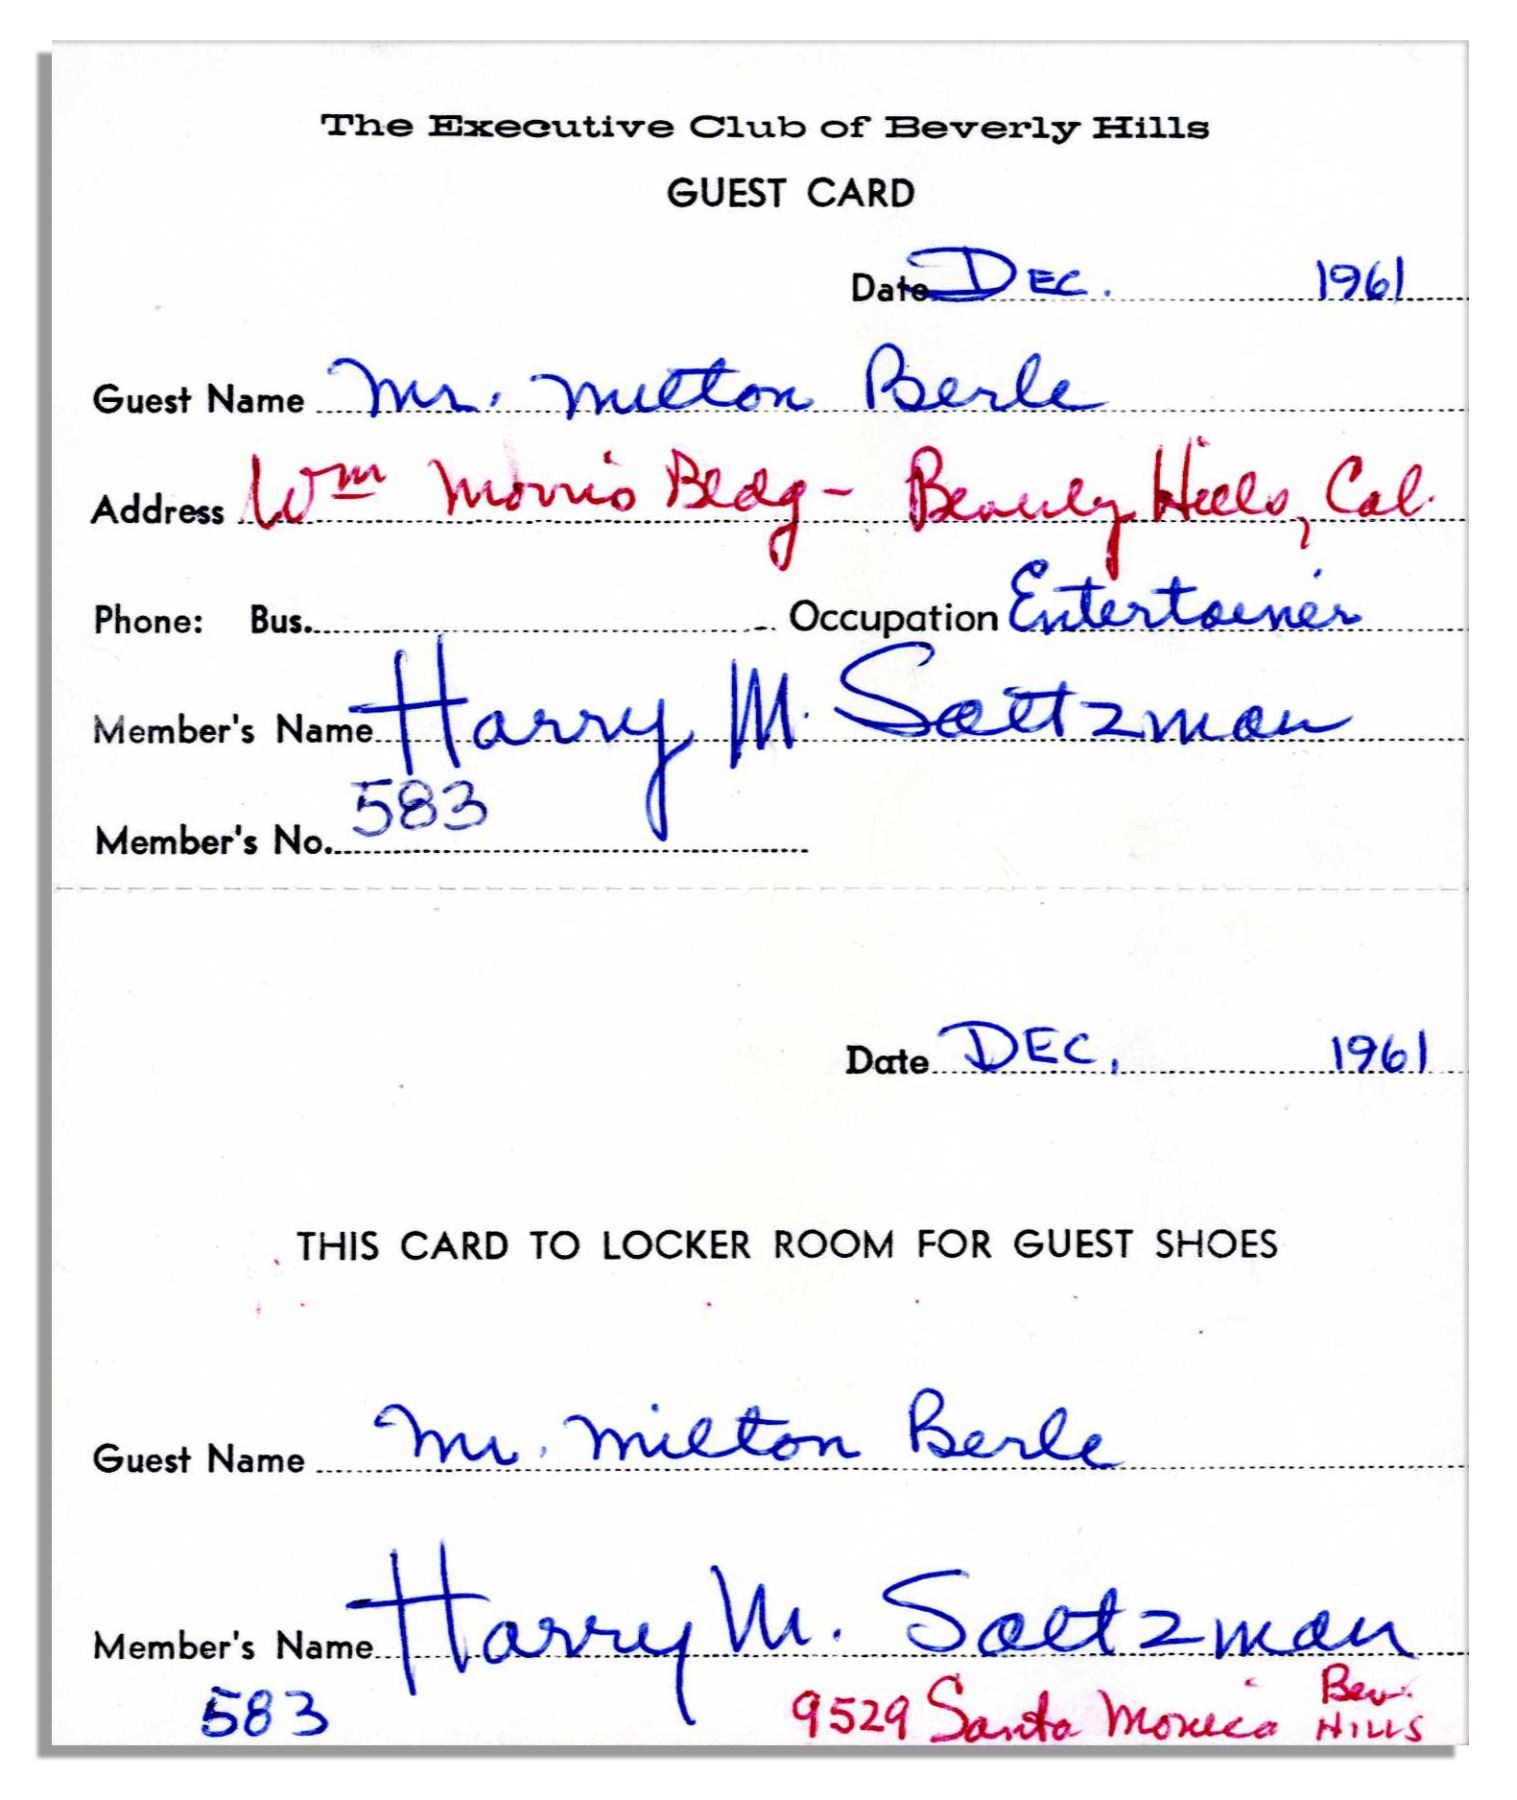 The Executive Club of Beverly Hills
GUEST CARD
Date DEC. 1961
Guest Name Mr. Milton Berle
Address Wm Morris Bldg - Beverly Hills, Cal.
Phone: Bus. Occupation Entertainer
Member's Name Harry M. Saltzman
Member's No. 583
Date DEC. 1961
THIS CARD TO LOCKER ROOM FOR GUEST SHOES
Guest Name Mr. Milton Berle
Member's Name Harry M. Saltzman
583 9529 Santa Monica Bev. HILLS